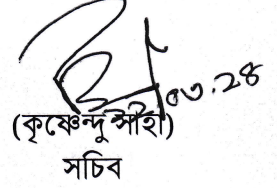 ০৩.২৪
(কৃষ্ণেন্দু সাহা)
সচিব